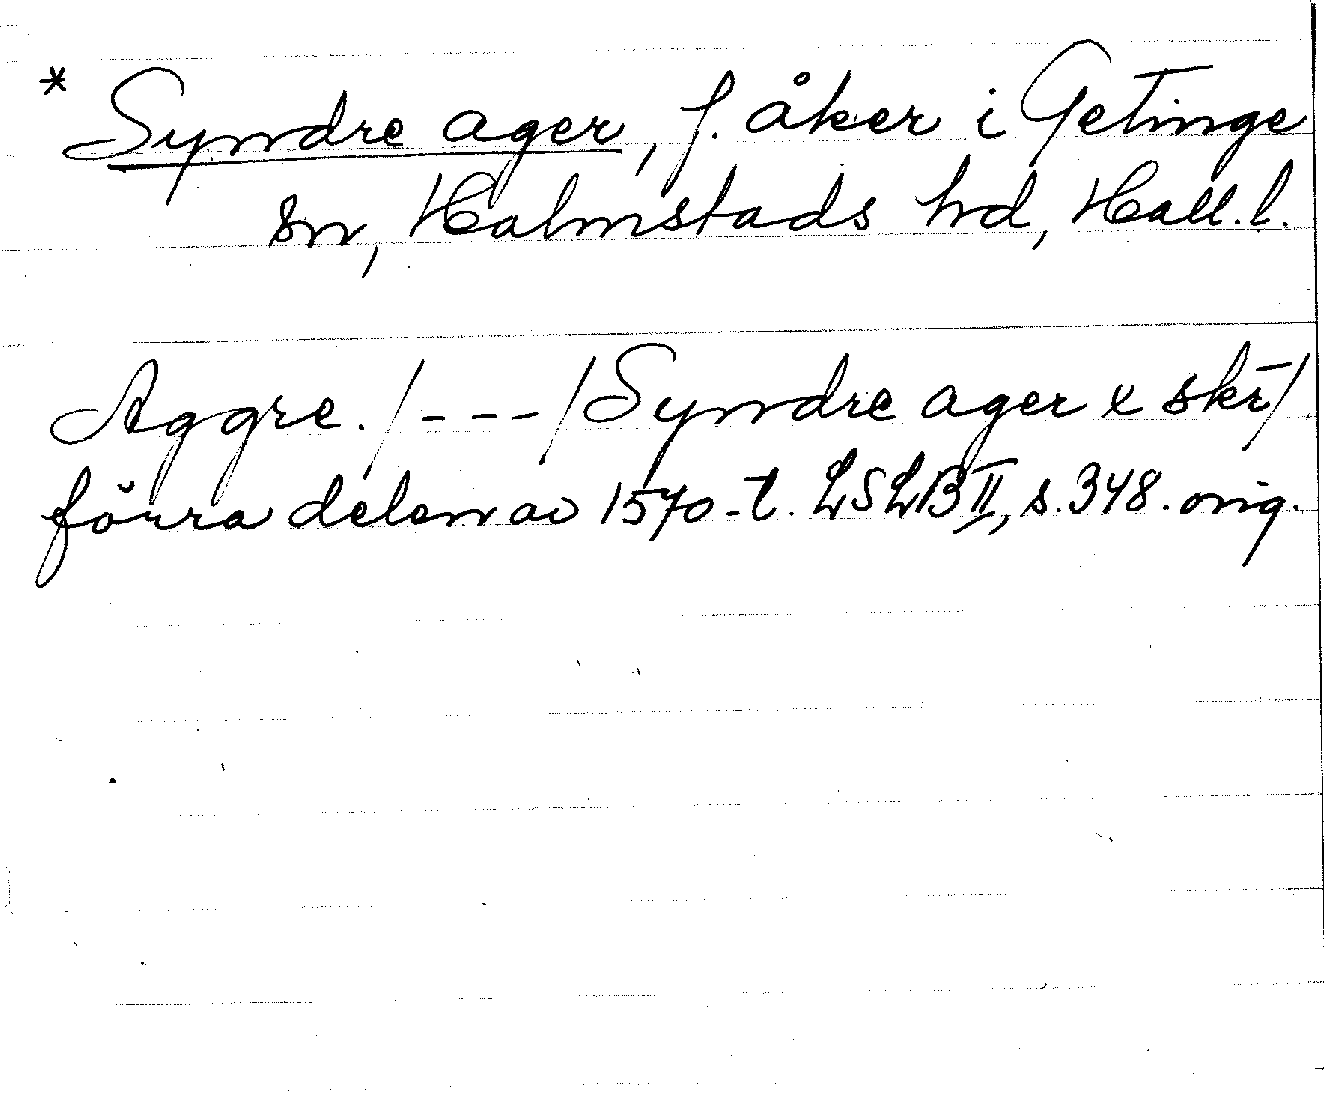 * Syndre ager, f. åker i Getinge
sn, Halmstads hd, Hall.l.
Aggre. /---/ Syndre ager x skr̄/
förra delen av 1570-t. LSLB II, s.348. orig.